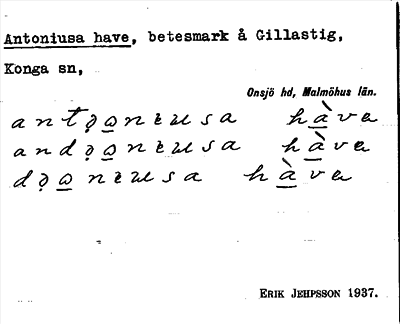 Antoniusa have, betesmark å Gillastig,
Konga sn,
Onsjö hd, Malmöhus län.
antọo̲nɩusa hà̲va
andọo̲nɩusa hà̲va
dọo̲nɩusa hà̲va
ERIK JEHPSSON 1937.